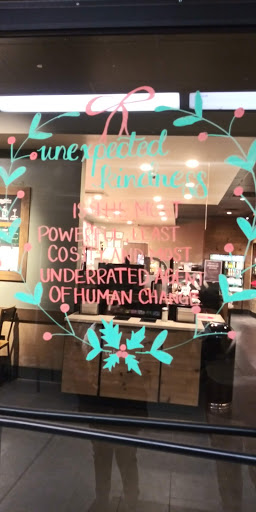 unexpected
kindness
IS THE MOST
POWERFUL, LEAST
COSTLY, AND MOST
UNDERRATED AGENT
OF HUMAN CHANGE